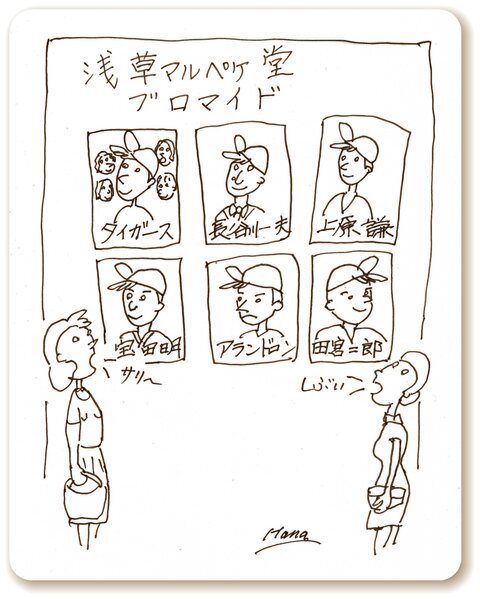 浅草マルペケ堂
ブロマイド
タイガース
長谷川一夫
上原謙
宝田明
アランドロン
田宮二郎
サリー
しぶい
Mana